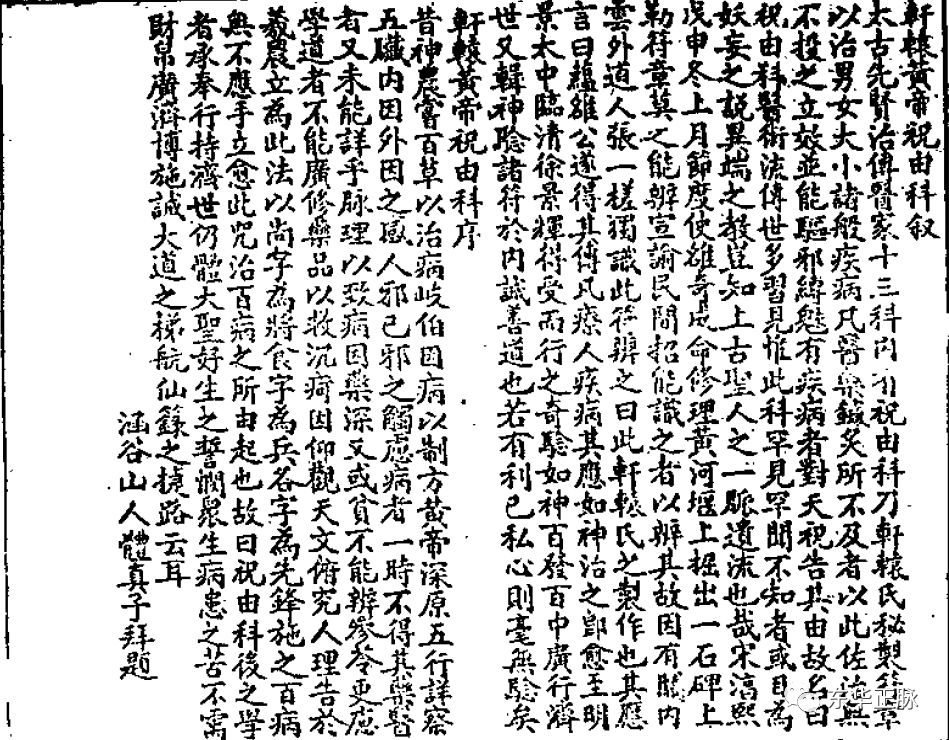 軒轅黃帝祝由科叙
太古先賢治傳醫家十三科内有祝由科乃軒轅氏秘製符章
以治男女大小諸般疾病凡醫藥鍼灸所不及者以此佐治無
不投之立效並能驅邪縛魅有疾病者對天祝告其由故名曰
祝由科醫術流傳世多習見惟此科罕見罕聞不知者或目為
妖妄之説異端之教豈知上古聖人之一脈遺流也哉宋淳熙
戊申冬上月節度使雒奇成命修理黄河堰上掘出一石碑上
勒符章莫之能辨宣諭民間招能識之者以辨其故因有關内
雲外道人張一槎獨識此符辨之曰此軒轅氏之製作也其應
言曰蘊雒公遂得其傳凡療人疾病其應如神治之即愈至明
景太中臨清徐景輝得受而行之奇驗如神百發百中廣行濟
世又輯神驗諸符於内誠善道也若有利己私心則毫無驗矣
軒轅黃帝祝由科序
昔神農嘗百草以治病岐伯因病以制方黄帝深原五行詳察
五臟内因外因之感人邪己邪之觸慮病者一時不得其藥醫
者又未能詳乎脈理以致病因藥深又或貧不能辦參苓更慮
學道者不能廣修藥品以救沉疴因仰觀天文俯究人理告於
羲農立為此法以尚字為將食字為兵名字為先鋒施之百病
無不應手立愈此咒治百病之所由起也故曰祝由科後之學
者承奉行持濟世仍體大聖好生之誓憫衆生病患之苦不需
財帛廣濟博施誠大道之梯航仙籙之捷路云耳
涵谷山人體真子拜題
东华正脉